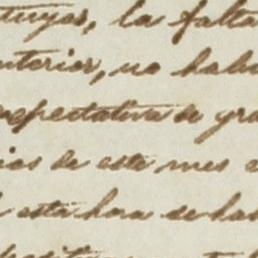 tuyas, la falta
nterior, no habi
expectativa de gra
ios de este mes e
esta hora se ha